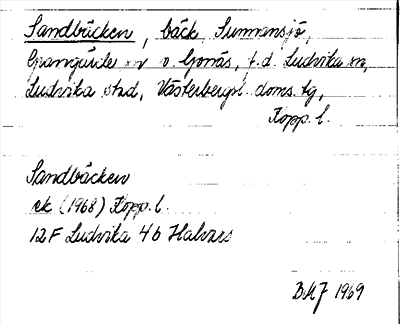 Sandbäcken, bäck, Sunnansjö,
Grangärde sn o. Gonäs, f.d. Ludvika sn,
Ludvika stad, Västerbergsl. doms. tg,
Kopp. l.
Sandbäcken
ek (1968) Kopp. l.
12F Ludvika 4b Halvars
BMJ 1969